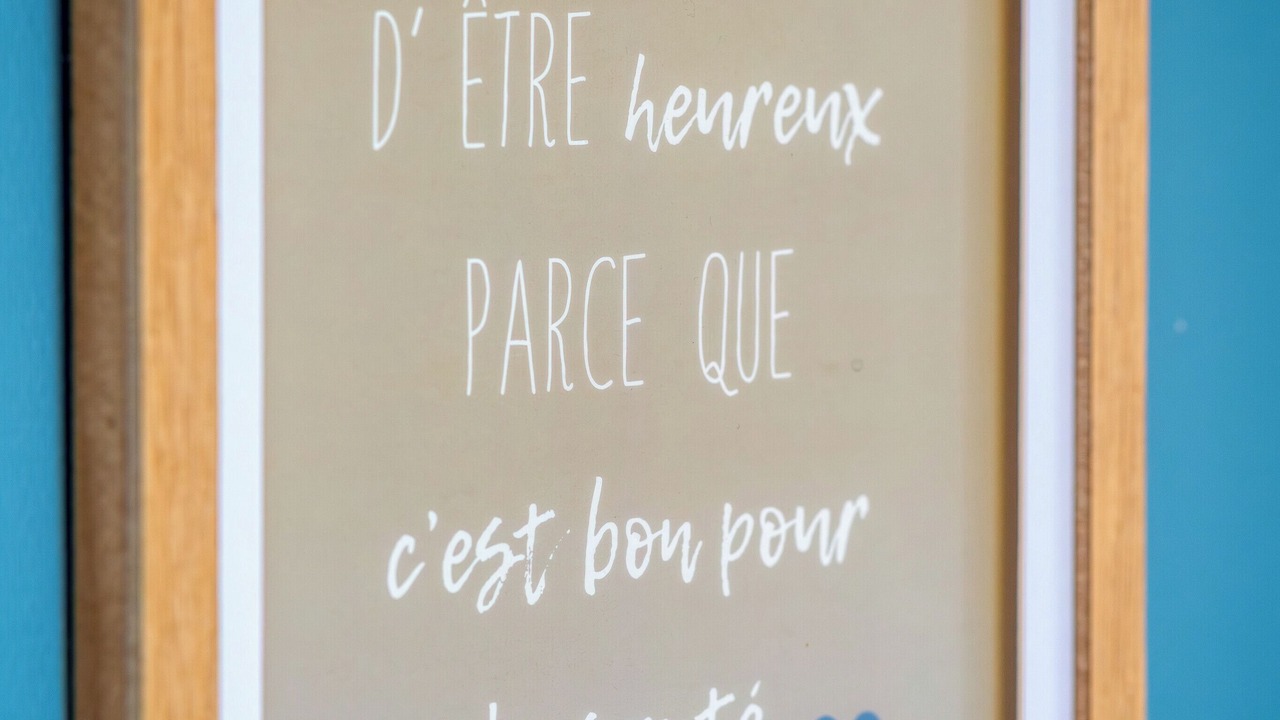 D' ÊTRE heureux
PARCE QUE
c'est bon pour
la santé